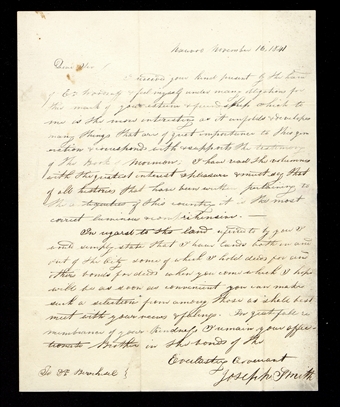 Nauvoo November 16, 1841
Dear Sir
I received your kind present by the hand
of Er. Woodruff & feel myself under many obligations for
this mark of your esteem & friendship which to
me is the more interesting as it unfolds & developes
many things that are of great importance to this gen
eration & corresponds with & supports the testimony
of the Book of Mormon. I have read the volumes
with the greatest interest & pleasure & must say that
of all histories that have been written pertaining to
the antiquities of this country it is the most
correct luminous & comprihensive. —
In regard to the land referred to by you I
would simply state that I have lands both in and
out of the City some of which I hold deeds for and
others bonds for deeds when you come which I hope
will be as soon as convenient you can make
such a selection from among those as shall best
meet with your veiws & feelings. In gratefull re
membrance of your kindness I remain your affec
tionate Brother in the bonds of the
Everlasting Covenant
Joseph Smith
To Dr. Bernhisel